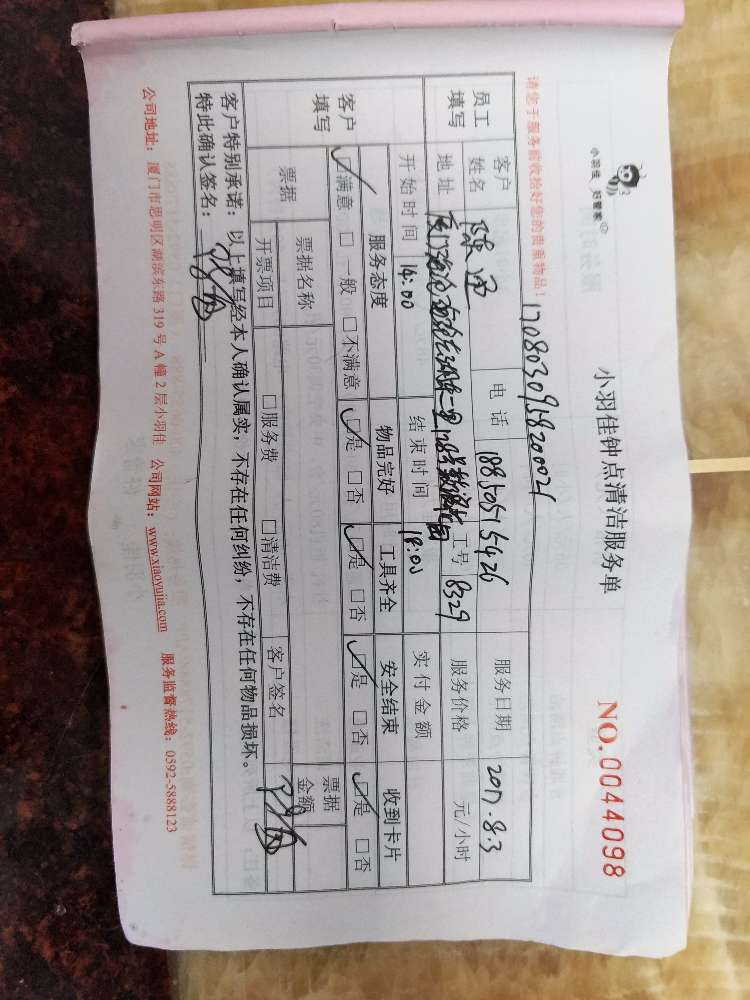 小羽佳 好管家
小羽佳钟点清洁服务单
NO.0044098
请您于服务前收拾好您的贵重物品!
1708030958200021
员工填写
客户姓名
电话 18850515426
服务日期 2017.8.3
地址
工号 8329
服务价格 元/小时
开始时间 14:00
结束时间 18:00
实付金额
客户填写
服务态度 物品完好 工具齐全 安全结束 收到卡片
☑满意 □一般 □不满意 ☑是 □否 ☑是 □否 ☑是 □否 ☑是 □否
票据
票据名称
票据金额
开票项目 □服务费 □清洁费
客户签名
客户特别承诺:以上填写经本人确认属实,不存在任何纠纷,不存在任何物品损坏。
特此确认签名:
公司地址:厦门市思明区湖滨东路 319 号 A 幢 2 层小羽佳 公司网站:www.xiaoyujia.com 服务监督热线:0592-5888123